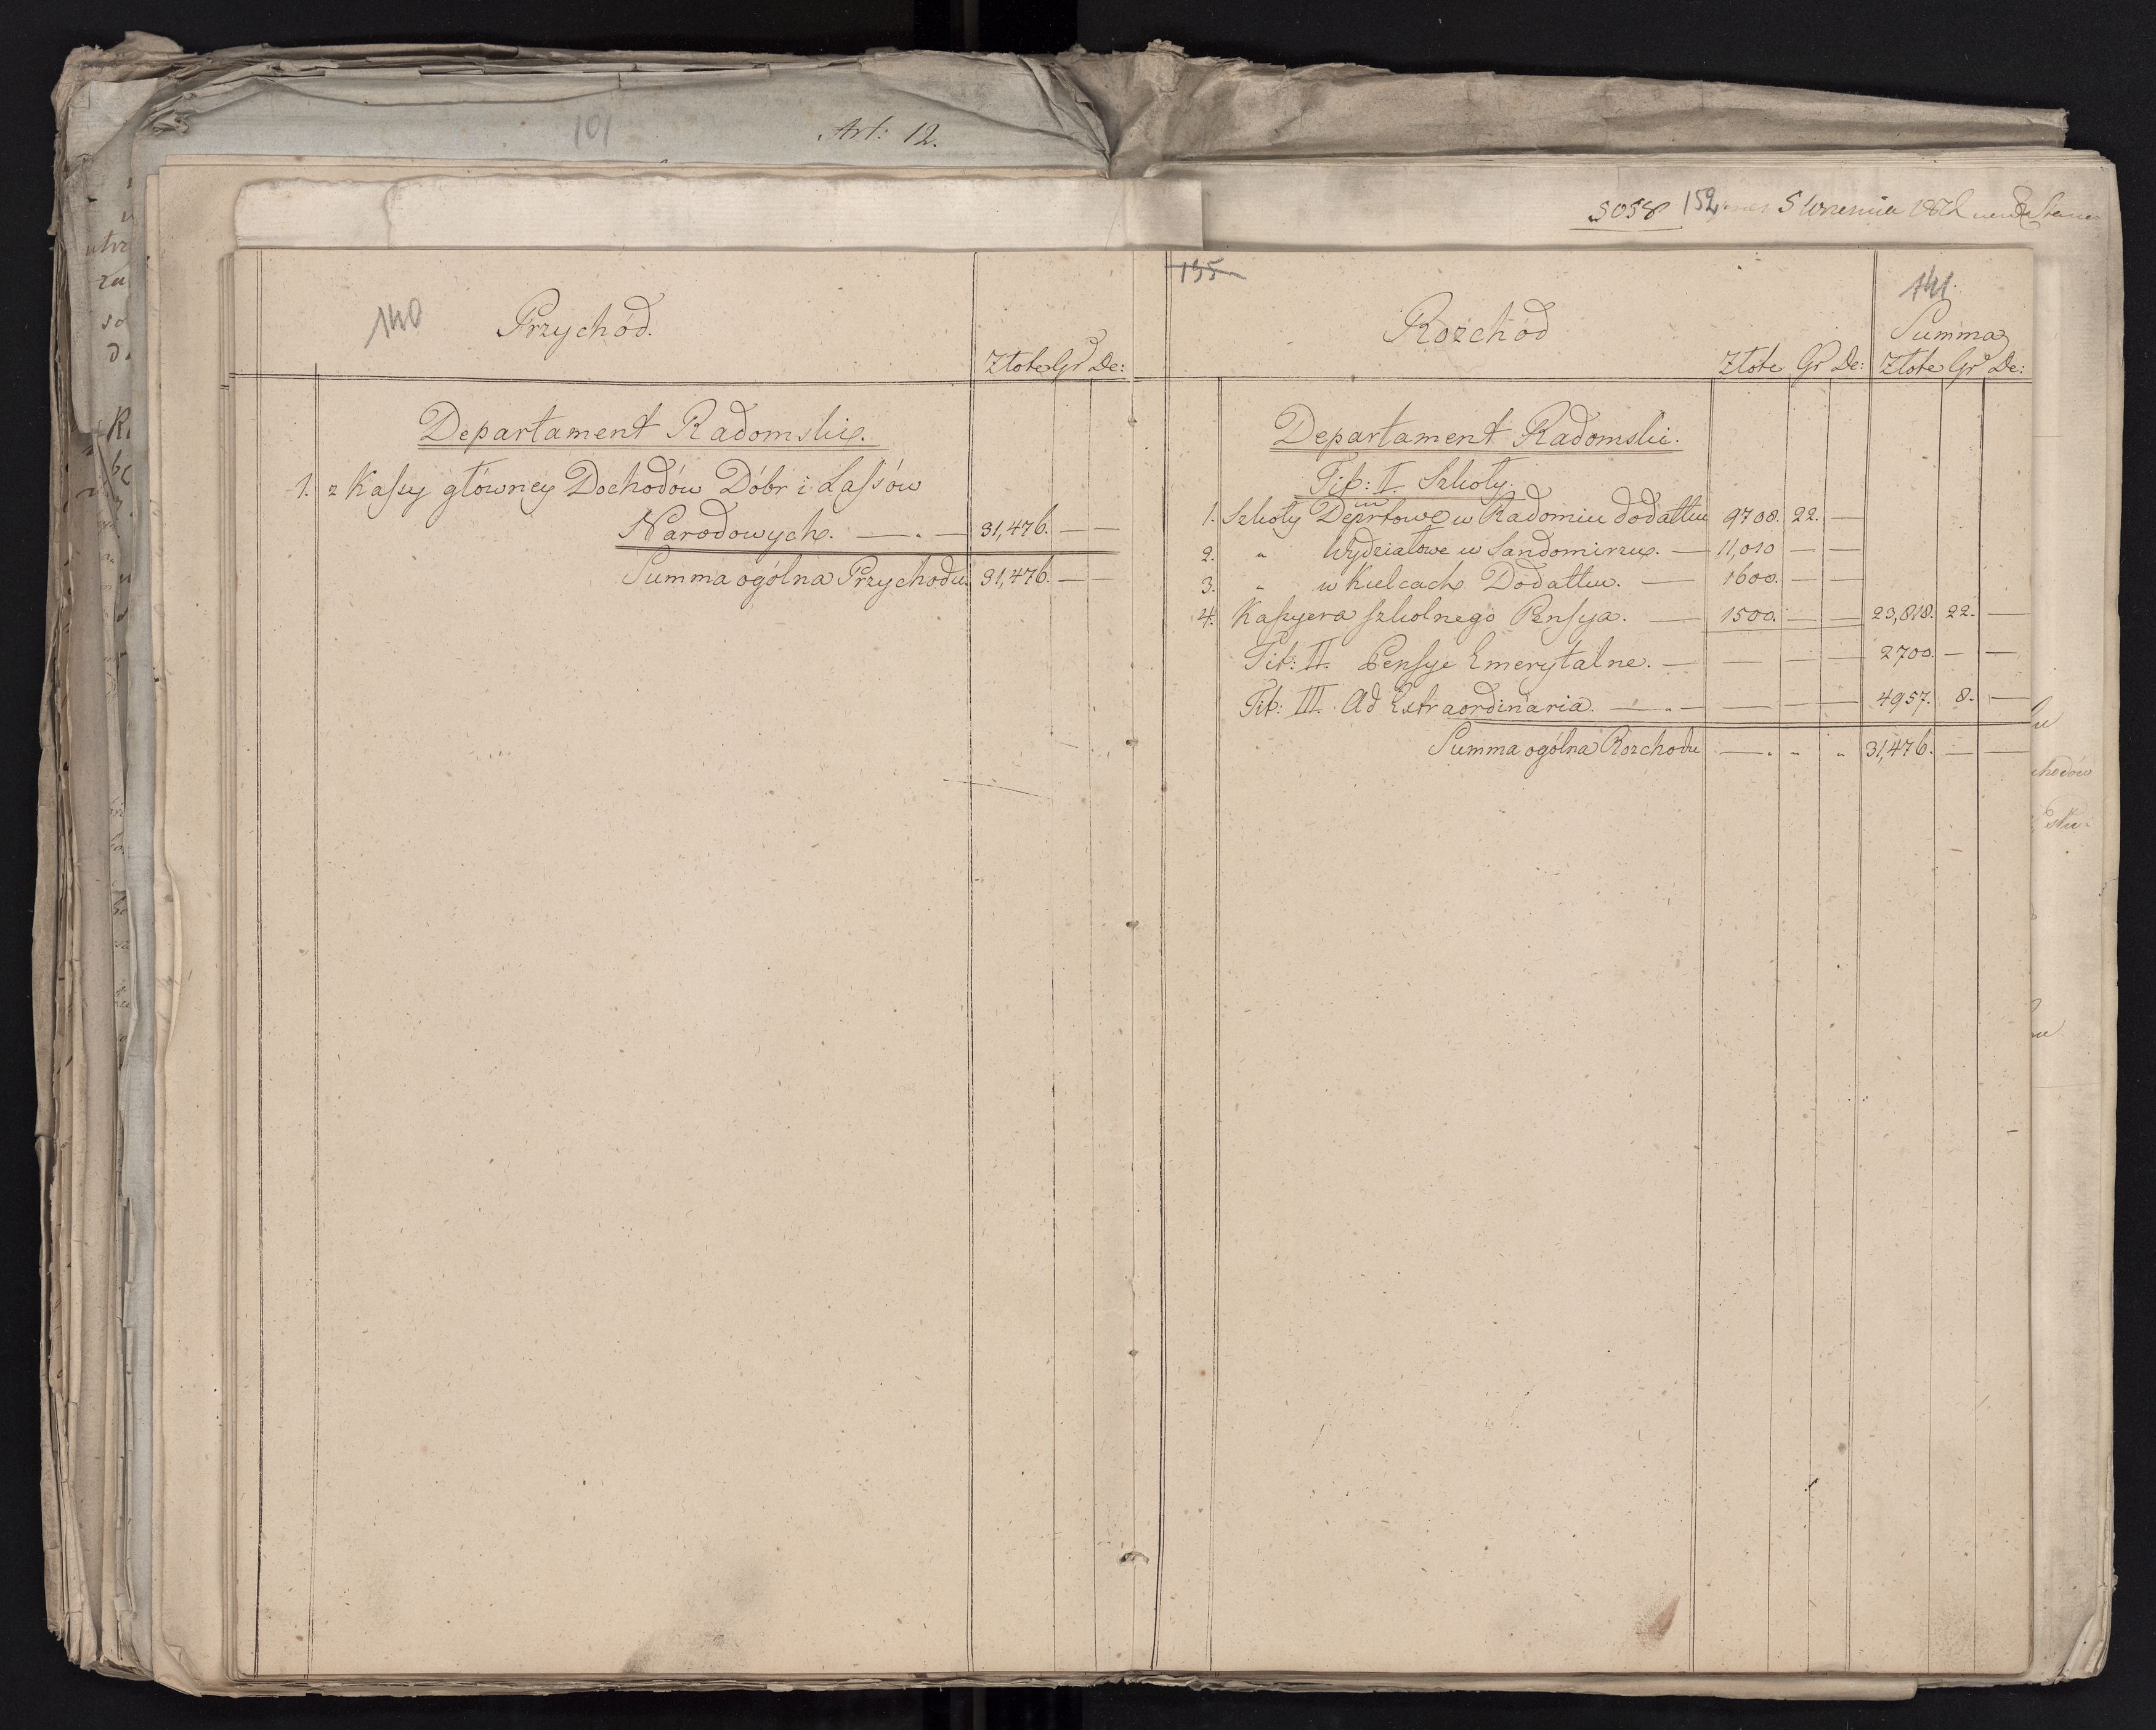 101
Art: 12.
5058
152
5 Września
140
Przychód.
Złote Gr De:
Departament Radomski.
1. z Kassy główney Dochodów Dóbr i Lassów
Narodowych. — . — 31,476. — —
Summa ogólna Przychodu 31,476. — —
135
141.
Rozchód
Summa
Złote Gr De: Złote Gr De:
Departament Radomski.
Tit: I. Szkoły.
1. Szkoły Deprtowe w Radomiu dodatku 9708. 22. —
2. " Wydziałowe w Sandomirzu. — 11,010 — —
3. " w Kielcach Dodatku. — 1600. — —
4. Kassyera szkolnego Pensya. — 1500. — — 23,818. 22. —
Tit: II. Pensye Emerytalne. — — — — 2700. — —
Tit: III. Ad Extraordinaria. — . — — — — 4957. 8. —
Summa ogólna Rozchodu — . - " 31,476. — —
chodów